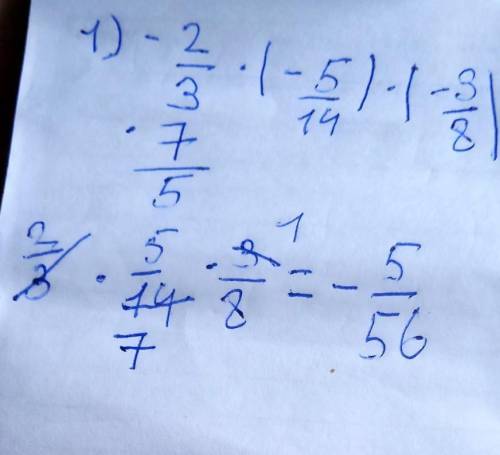 1) - 2/3 · (- 5/14) · (- 3/8)
· 7/5
2/3 · 5/14 · 3/8 = - 5/56
7 1